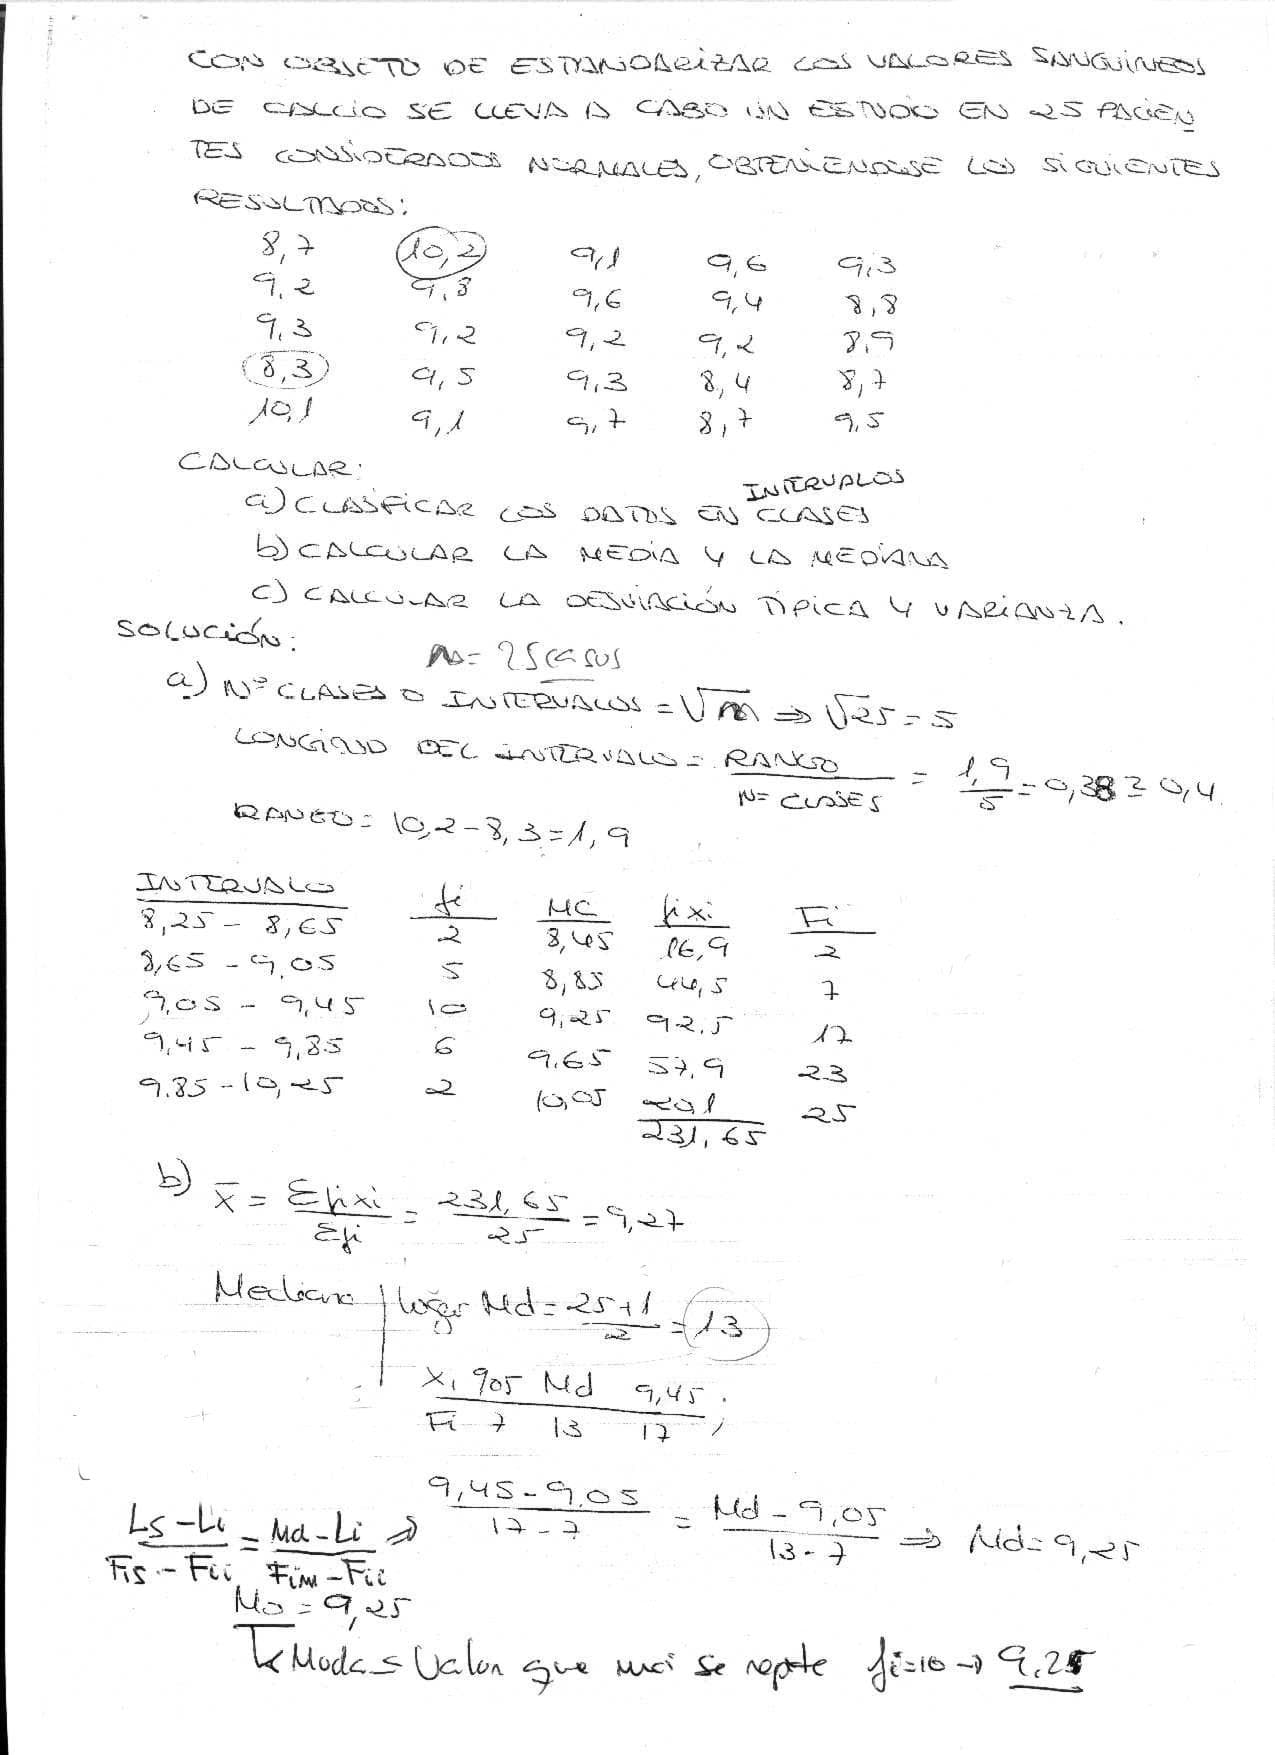 CON OBJETO DE ESTANDARIZAR LOS VALORES SANGUINEOS
DE CALCIO SE LLEVA A CABO UN ESTUDIO EN 25 PACIEN
TES CONSIDERADOS NORMALES, OBTENIENDOSE LOS SIGUIENTES
RESULTADOS:
8,7 10,2 9,1 9,6 9,3
9,2 9,8 9,6 9,4 8,8
9,3 9,2 9,2 9,2 8,9
8,3 9,5 9,3 8,4 8,7
10,1 9,1 9,7 8,7 9,5
CALCULAR:
INTERVALOS
a) CLASIFICAR LOS DATOS EN CLASES
b) CALCULAR LA MEDIA Y LA MEDIANA
c) CALCULAR LA DESVIACIÓN TÍPICA Y VARIANZA.
SOLUCIÓN:
n = 25 casos
a) Nº CLASES O INTERVALOS = √n ⇒ √25 = 5
LONGITUD DEL INTERVALO = RANGO / Nº CLASES = 1,9 / 5 = 0,38 ≅ 0,4
RANGO = 10,2 - 8,3 = 1,9
INTERVALO fi MC fixi Fi
8,25 - 8,65 2 8,45 16,9 2
8,65 - 9,05 5 8,85 44,5 7
9,05 - 9,45 10 9,25 92,5 17
9,45 - 9,85 6 9,65 57,9 23
9,85 - 10,25 2 10,05 20,1 25
231,65
b) x̄ = Σfixi / Σfi = 231,65 / 25 = 9,27
Mediana lugar Md = 25+1 / 2 = 13
Xi 9,05 Md 9,45;
Fi 7 13 17
Ls - Li / Fis - Fii = Md - Li / Fim - Fii ⇒ 9,45 - 9,05 / 17 - 7 = Md - 9,05 / 13 - 7 ⇒ Md = 9,25
Mo = 9,25
Moda = Valor que más se repite fi=10 → 9,25